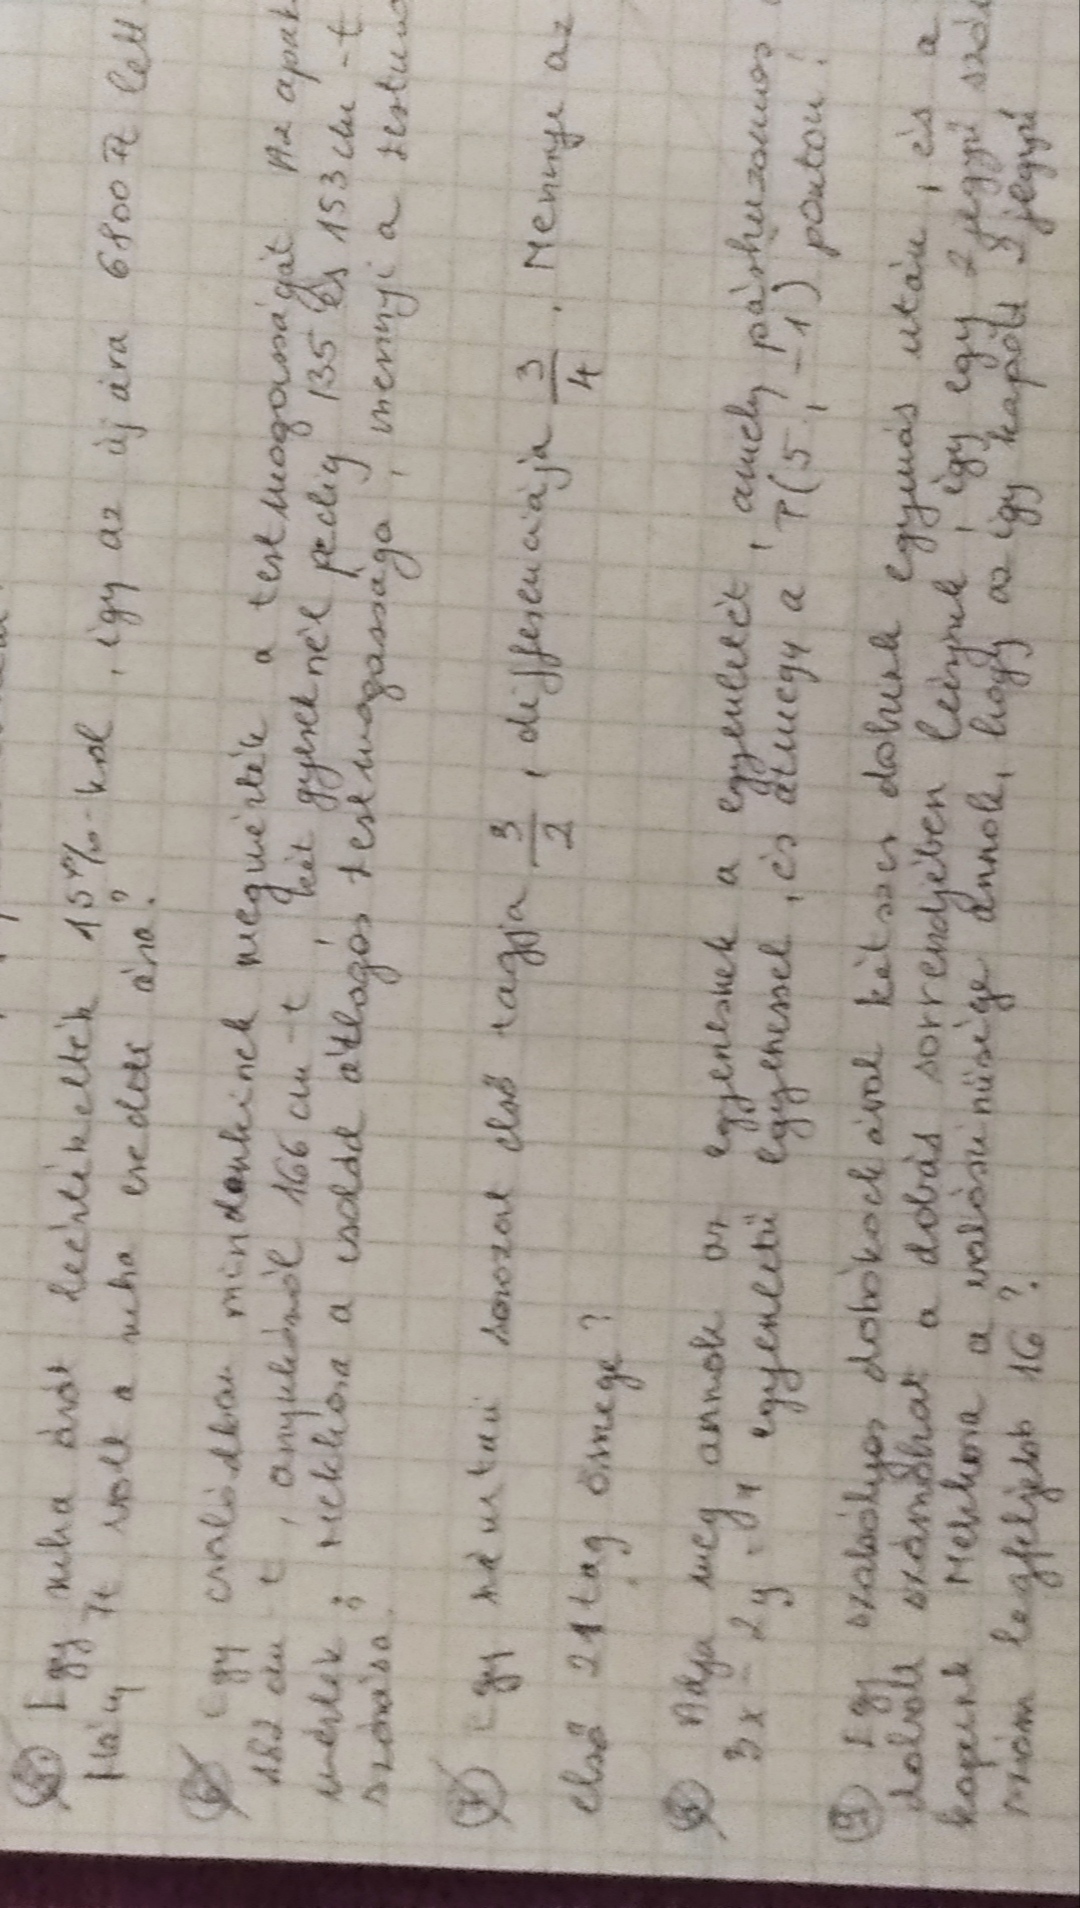 Egy ruha árát leértékelték 15%-kal, így az új ára 6800 Ft lett.
Hány Ft volt a ruha eredeti ára?
Egy családban mindenkinek megmérték a testmagasságát. Az apán
182 cm-t, anyukánál 166 cm-t, két gyereknél pedig 135 és 153 cm-t
mértek. Mekkora a család átlagos testmagassága, mennyi a testma
szórása?
7 Egy számtani sorozat első tagja 3/2, differenciája 3/4. Mennyi az
első 21 tag összege?
Adja meg annak az egyenesnek a egyenletét, amely párhuzamos
3x - 2y = 4 egyenletű egyenessel, és átmegy a P(5; -1) ponton!
9 Egy szabályos dobókockával kétszer dobunk egymás után, és a
dobott számokat a dobás sorrendjében leírjuk, így egy 2 jegyű szá
kapunk. Mekkora a valószínűsége annak, hogy az így kapott 2 jegyű
szám legfeljebb 16?